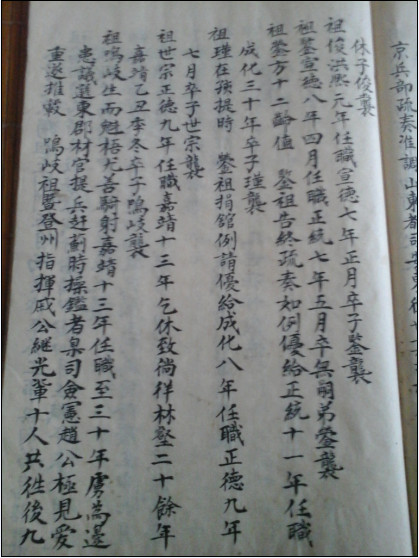 京兵部疏奏准調山東都司安東衛
休子俊襲
祖俊洪熙元年任職宣德七年正月卒子鑒襲
祖鑒宣德八年四月任職正統七年五月卒無嗣弟鎣襲
祖鎣方十二齡值 鎣祖告終疏奏如例優給正統十一年任職
成化三十年卒子瑾襲
祖瑾在孩提時 鎣祖捐舘例請優給成化八年任職正德九年
七月卒子世宗襲
祖世宗正德九年任職嘉靖十三年乞休致徜徉林壑二十餘年
嘉靖乙丑季冬卒子鳴岐襲
祖鳴岐生而魁梧尤善騎射嘉靖十三年任職至三十年虜為邊
患議選東郡材官提兵赴薊時操鑑者臬司僉憲趙公極見愛
重遂推轂 鳴岐祖暨登州指揮戚公繼光輩十人共徃後九